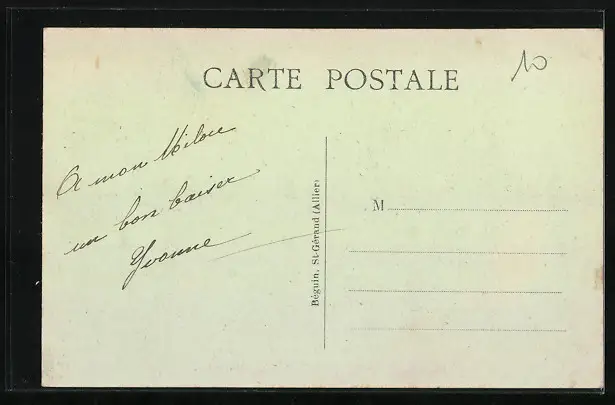 CARTE POSTALE
10
A mon Milou
un bon baiser
Yvonne
Béguin, St-Gérand (Allier)
M